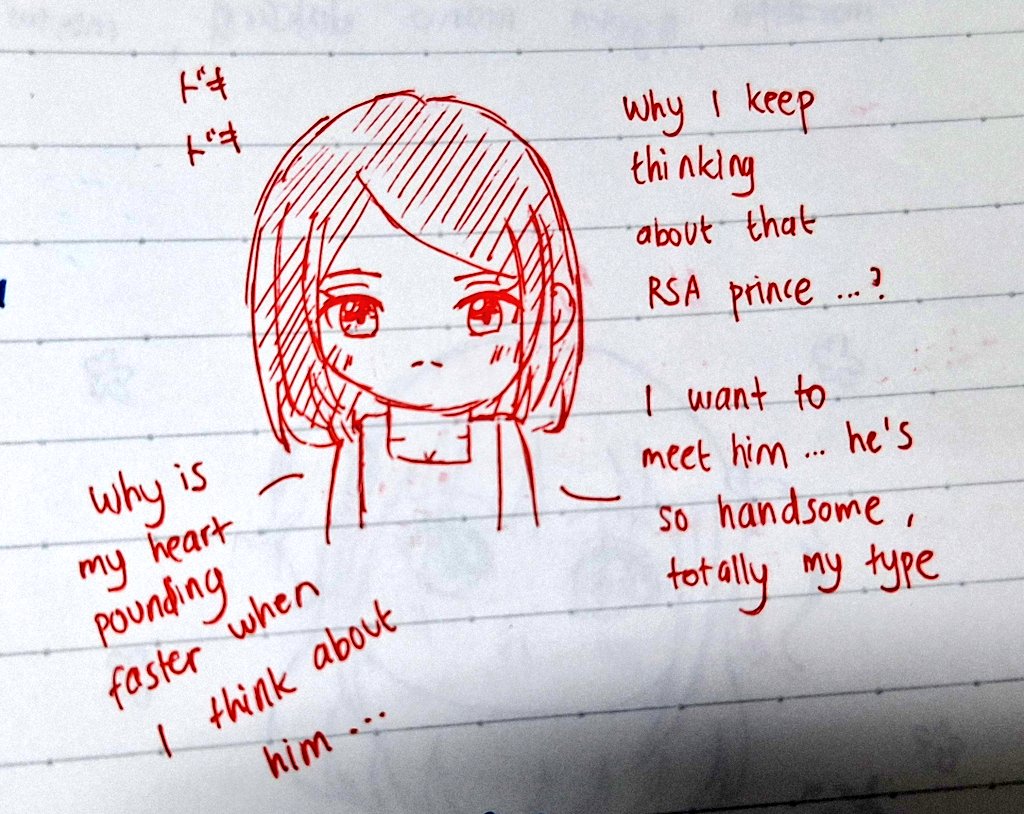 ドキ
ドキ
Why I keep
thinking
about that
RSA prince ...?
I want to
meet him ... he's
so handsome,
totally my type
Why is
my heart
pounding
faster when
I think about
him ...